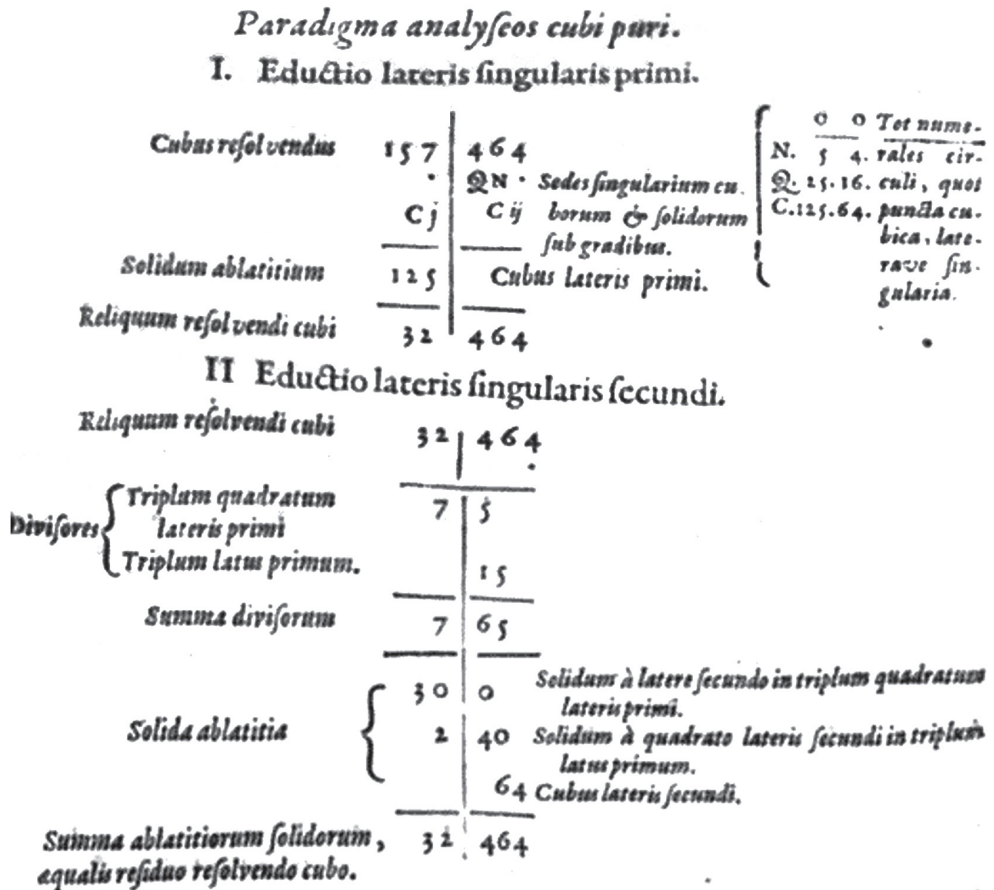 Paradigma analyſeos cubi puri.
I. Eductio lateris ſingularis primi.
Cubus reſolvendus 157 | 464
QN · Sedes ſingularium cu-
Cj | C ij borum & ſolidorum
ſub gradibus.
Solidum ablatitium 125 Cubus lateris primi.
Reliquum reſolvendi cubi 32 | 464
0 0 Tot nume-
N. 5 4. rales cir-
Q. 25.16. culi, quot
C.125.64. puncta cu-
bica, late-
rave ſin-
gularia.
II Eductio lateris ſingularis ſecundi.
Reliquum reſolvendi cubi 32 | 464
Diviſores { Triplum quadratum 7 | 5
lateris primi
Triplum latus primum. 15
Summa diviſorum 7 | 65
Solida ablatitia { 30 | 0 Solidum à latere ſecundo in triplum quadratum
lateris primi.
2 | 40 Solidum à quadrato lateris ſecundi in triplum
latus primum.
64 Cubus lateris ſecundi.
Summa ablatitiorum ſolidorum, 32 | 464
aqualis reſiduo reſolvendo cubo.